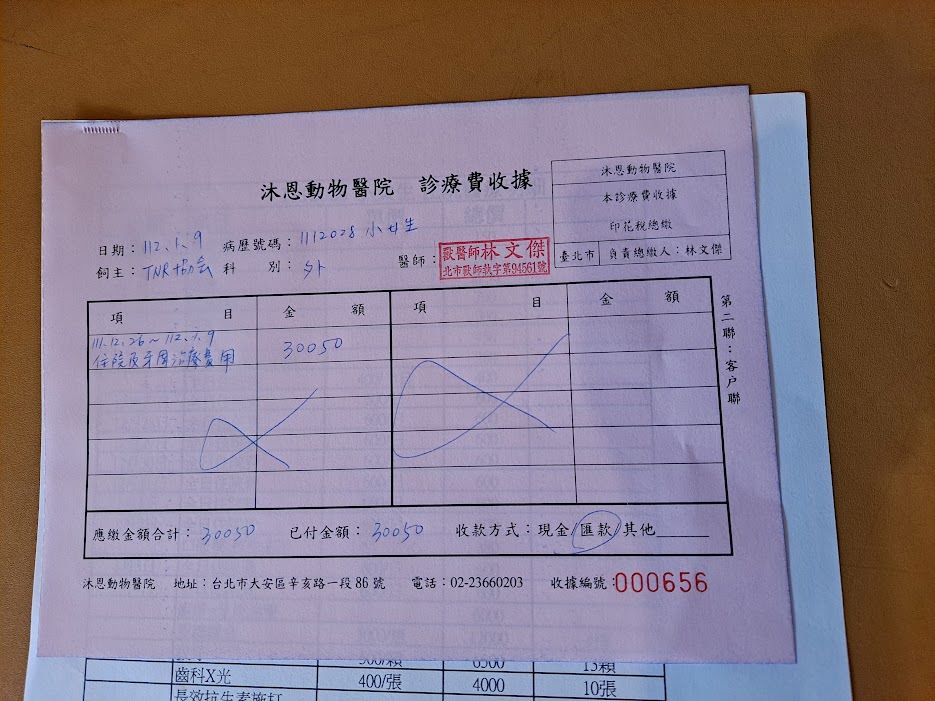 沐恩動物醫院 診療費收據
沐恩動物醫院
本診療費收據
印花稅總繳
臺北市 負責總繳人：林文傑
日期：112.1.9 病歷號碼：1112028 小女生
飼主：TNR協會 科 別：外 醫師：
獸醫師林文傑
北市獸師執字第94561號
項 目 金 額 項 目 金 額
111.12.26～112.1.9
住院及牙周治療費用 30050
應繳金額合計：30050 已付金額：30050 收款方式：現金/匯款/其他
沐恩動物醫院 地址：台北市大安區辛亥路一段86號 電話：02-23660203 收據編號：000656
第二聯：客戶聯
500/顆 6500 13顆
齒科X光 400/張 4000 10張
長效抗生素施打